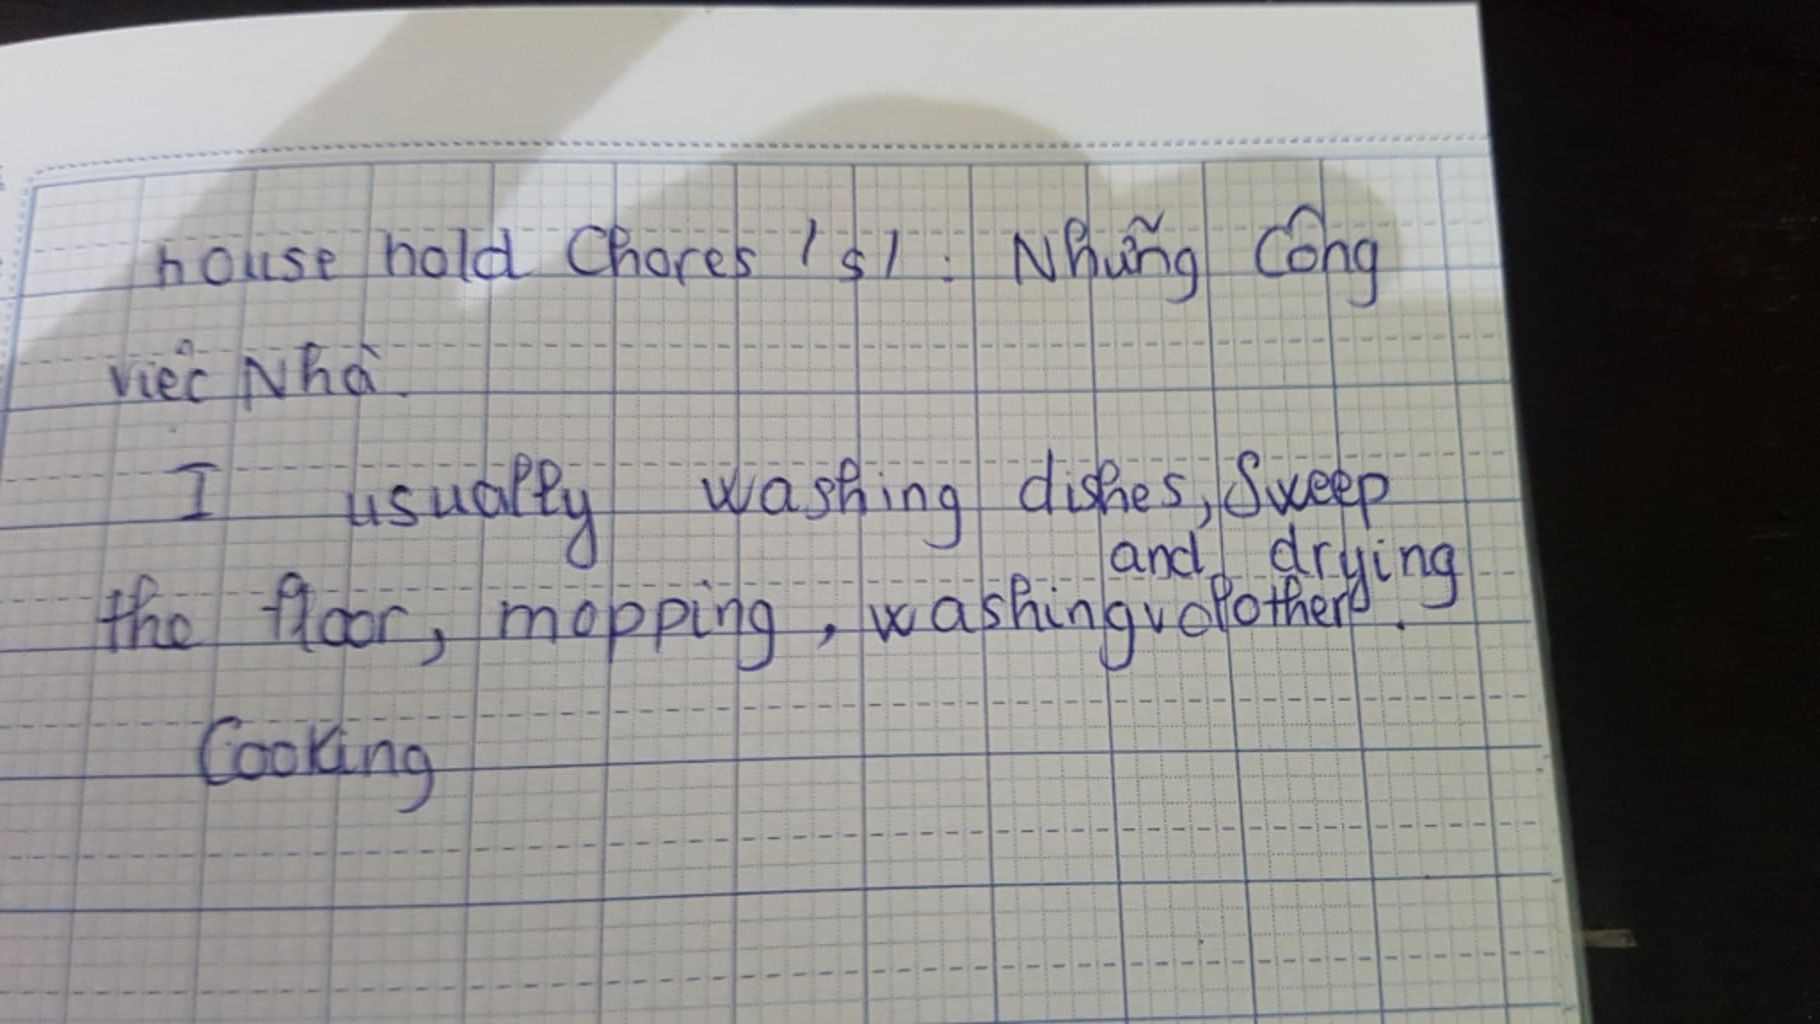 house hold Chores /s/ : Những Công
việc Nhà.
I usually washing dishes, Sweep
and drying
the floor, mopping, washing clother.
Cooking